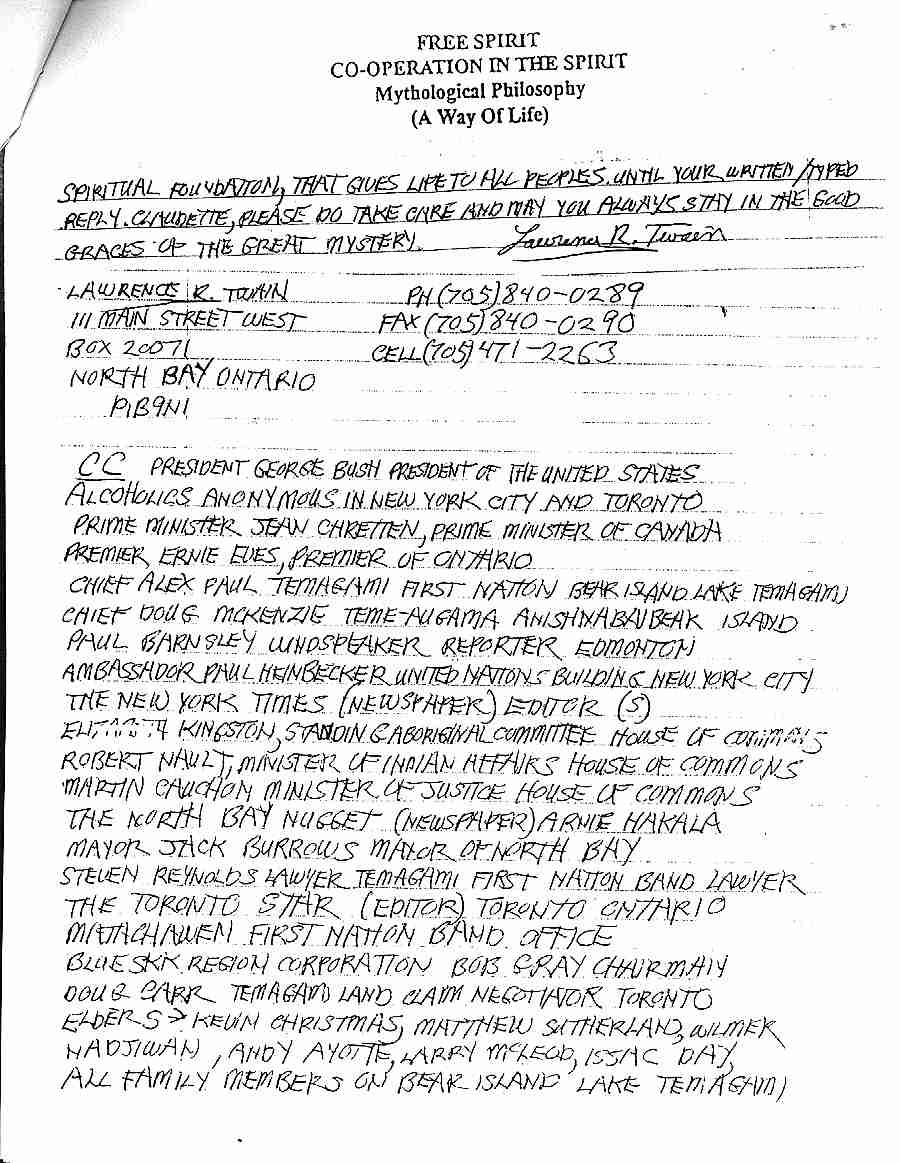 FREE SPIRIT
CO-OPERATION IN THE SPIRIT
Mythological Philosophy
(A Way Of Life)
SPIRITUAL FOUNDATION, THAT GIVES LIFE TO ALL PEOPLES. UNTIL YOUR WRITTEN/TYPED
REPLY. CLAUDETTE, PLEASE DO TAKE CARE AND MAY YOU ALWAYS STAY IN THE GOOD
GRACES OF THE GREAT MYSTERY. Lawrence R. Twain
LAWRENCE R. TWAIN PH (705) 840-0289
111 MAIN STREET WEST FAX (705) 840-0290
BOX 20071 CELL (705) 471-2263
NORTH BAY ONTARIO
P1B9N1
CC PRESIDENT GEORGE BUSH PRESIDENT OF THE UNITED STATES
ALCOHOLICS ANONYMOUS IN NEW YORK CITY AND TORONTO
PRIME MINISTER JEAN CHRETTEN, PRIME MINISTER OF CANADA
PREMIER ERNIE EVES, PREMIER OF ONTARIO
CHIEF ALEX PAUL TEMAGAMI FIRST NATION BEAR ISLAND LAKE TEMAGAMI
CHIEF DOUG MCKENZIE TEME-AUGAMA ANISHNABAI BEAR ISLAND
PAUL BARNSLEY WINDSPEAKER REPORTER EDMONTON
AMBASSADOR PAUL HEINBECKER UNITED NATIONS BUILDING NEW YORK CITY
THE NEW YORK TIMES (NEWSPAPER) EDITOR (S)
KINGSTON, STANDING ABORIGINAL COMMITTEE HOUSE OF COMMONS
ROBERT NAULT, MINISTER OF INDIAN AFFAIRS HOUSE OF COMMONS
MARTIN CAUCHON MINISTER OF JUSTICE HOUSE OF COMMONS
THE NORTH BAY NUGGET (NEWSPAPER) ARNIE HAKALA
MAYOR JACK BURROWS MAYOR OF NORTH BAY
STEVEN REYNOLDS LAWYER TEMAGAMI FIRST NATION BAND LAWYER
THE TORONTO STAR (EDITOR) TORONTO ONTARIO
MATACHAWEN FIRST NATION BAND OFFICE
BLUE SKK REGION CORPORATION BOB GRAY CHAIRMAN
DOUG CARR TEMAGAMI LAND CLAIM NEGOTIATOR TORONTO
ELDERS > KEVIN CHRISTMAS, MATTHEW SUTHERLAND, WILMER
NADJIWAN, ANDY AYOTTE, LARRY MCLEOD, ISSAC DAY,
ALL FAMILY MEMBERS ON BEAR ISLAND LAKE TEMAGAMI